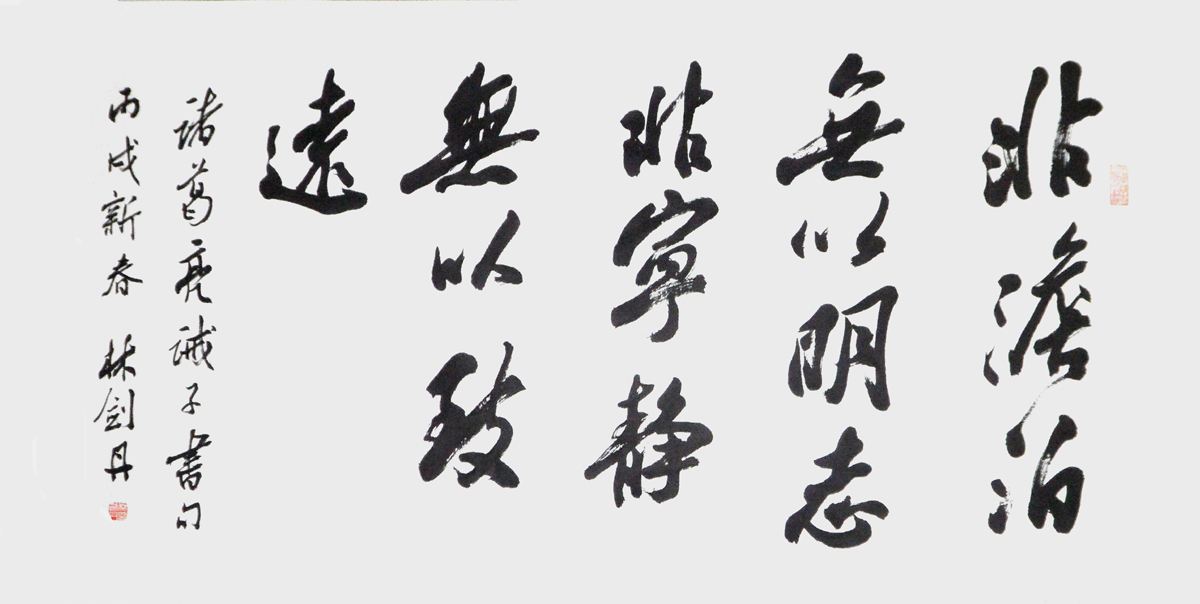 非澹泊
無以明志
非寧静
無以致
遠
诸葛亮诫子書句
丙戌新春 林剑丹